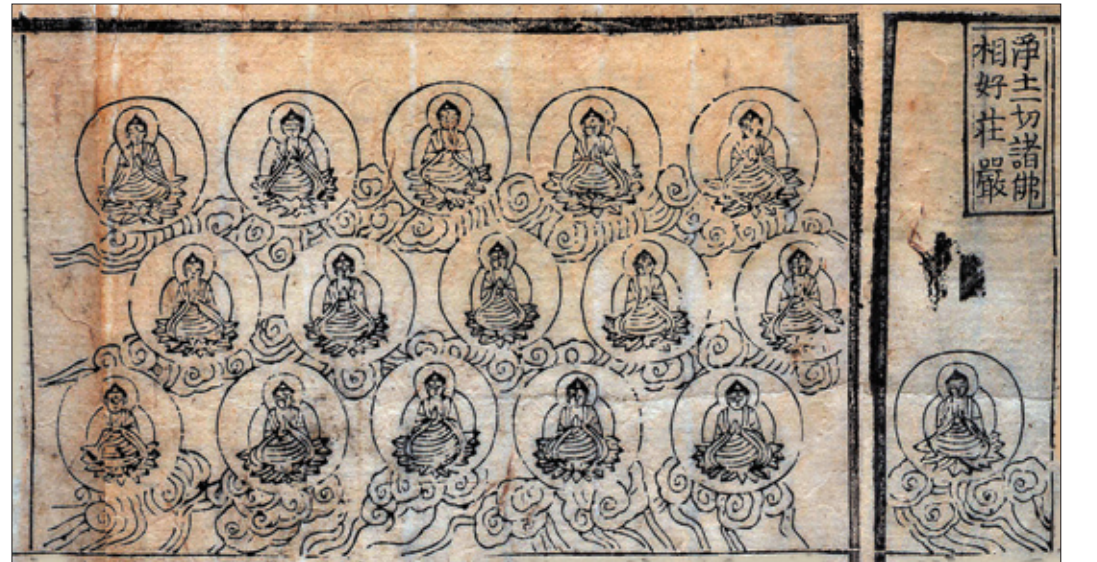 淨土一切諸佛
相好莊嚴